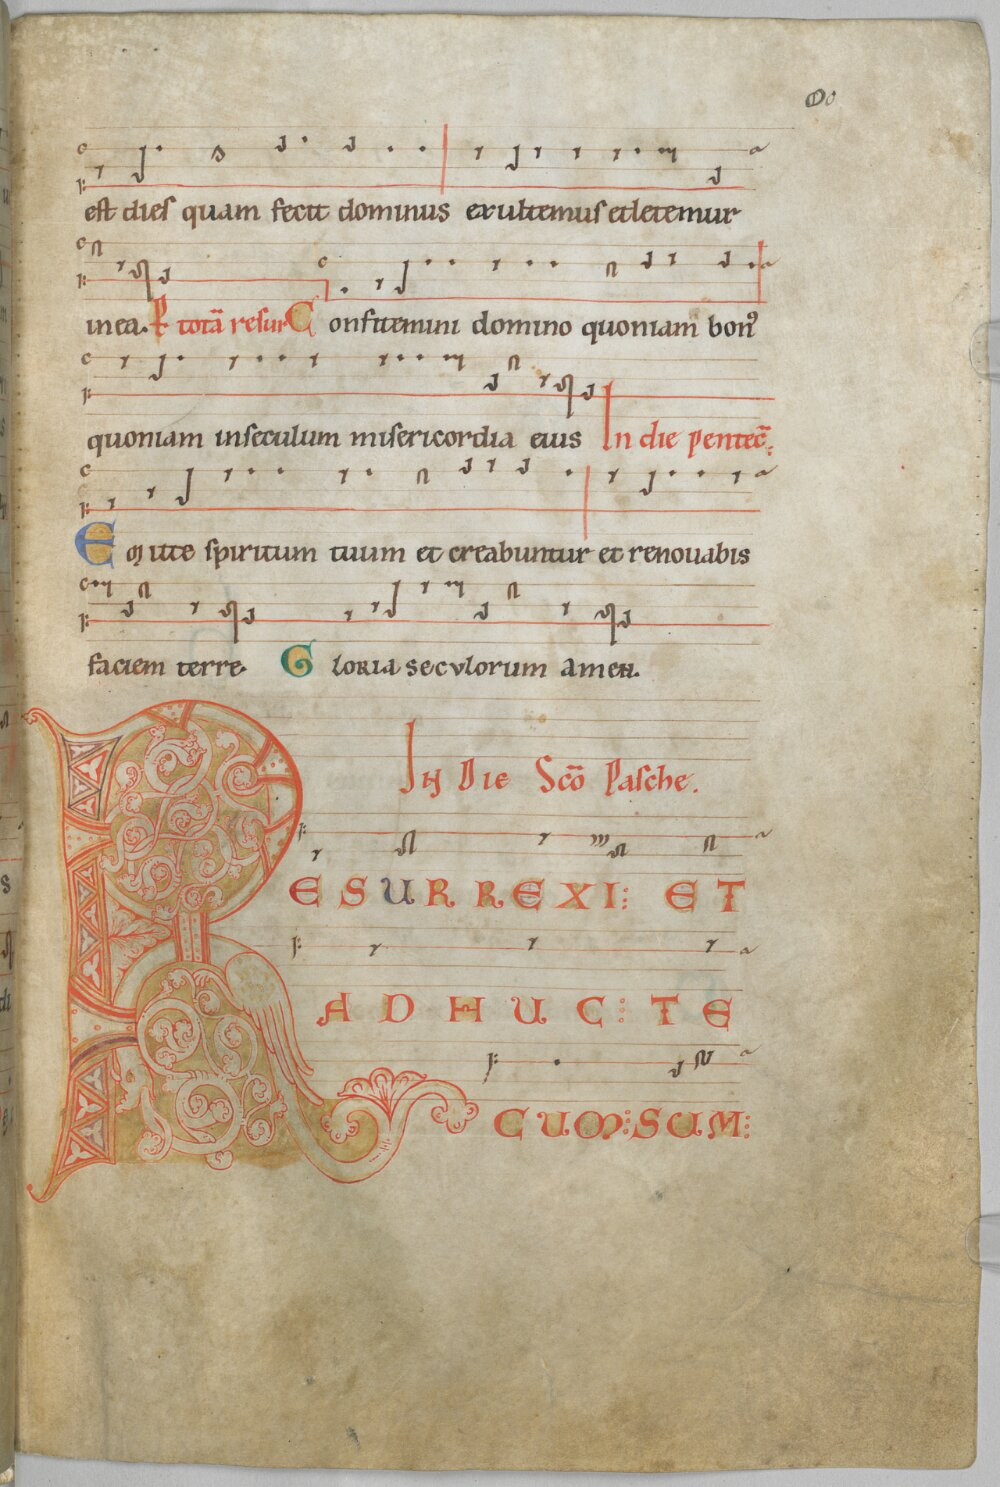 est dies quam fecit dominus exultemus et letemur
in ea. R totā resur Confitemini domino quoniam bonꝰ
quoniam in seculum misericordia eius In die pentec̄.
Emitte spiritum tuum et creabuntur et renouabis
faciem terre. Gloria seculorum amen.
In Die Sc̄o Pasche.
RESURREXI: ET
ADHUC: TE
CUM: SUM: